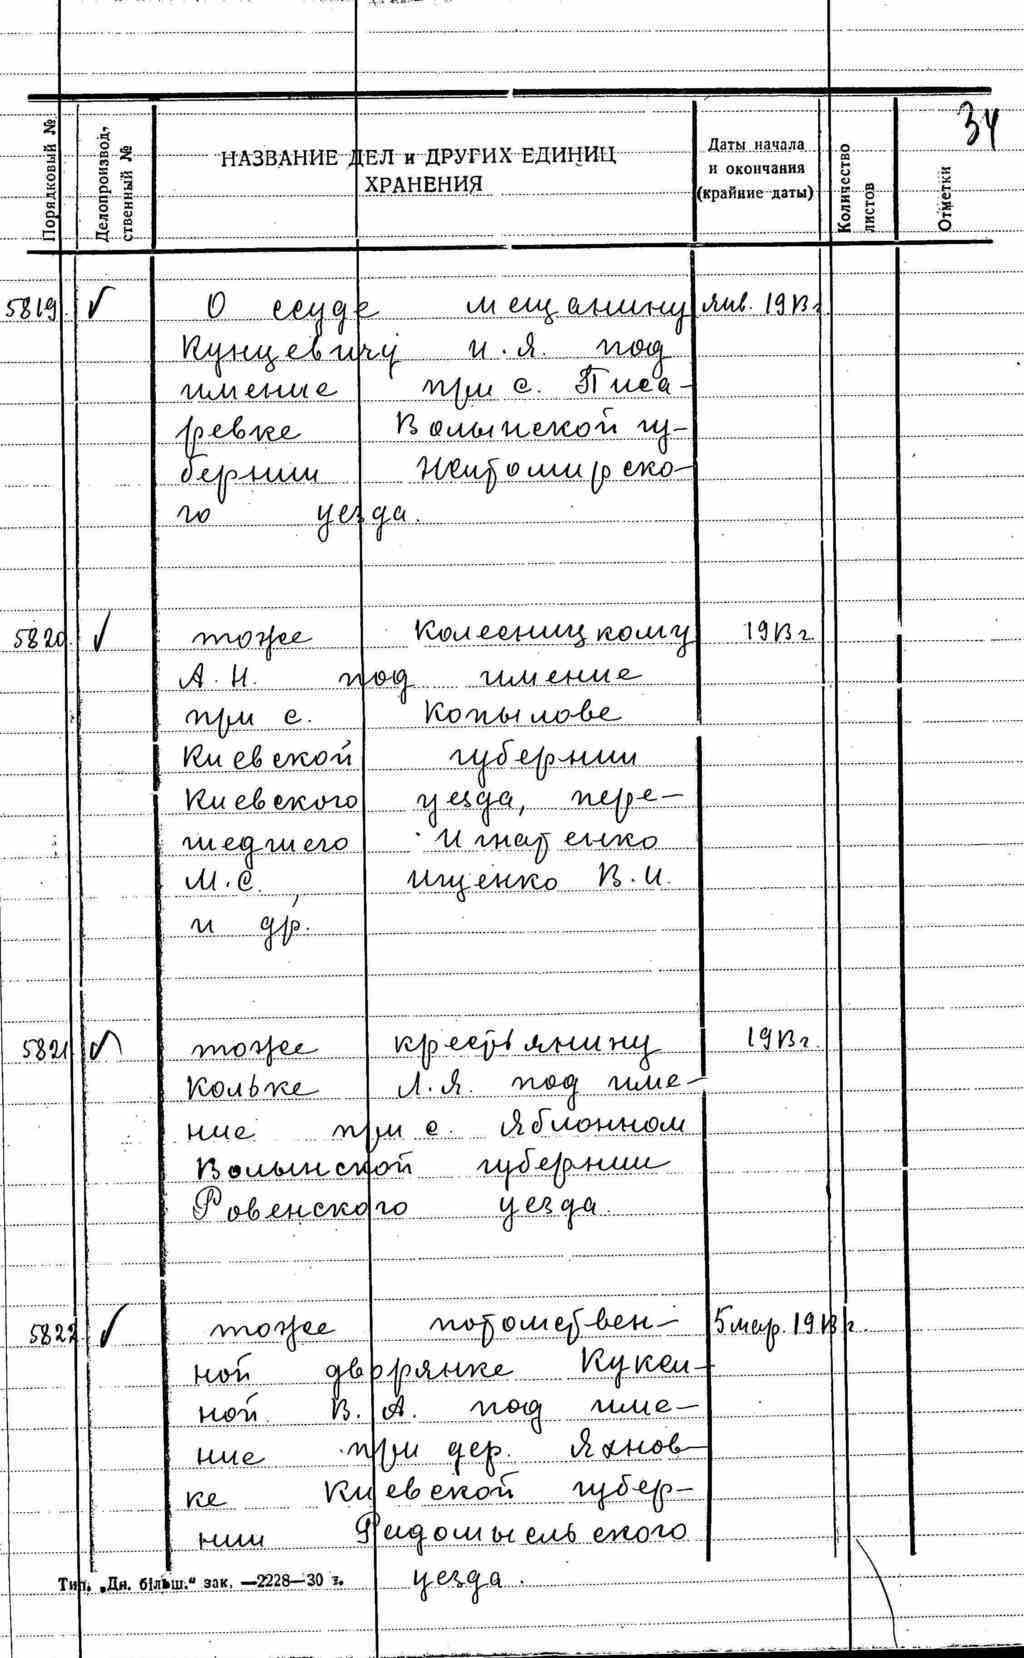 34
Порядковый №
Делопроизвод,
ственный №
НАЗВАНИЕ ДЕЛ и ДРУГИХ ЕДИНИЦ
ХРАНЕНИЯ
Даты начала
и окончания
(крайние даты)
Количество
листов
Отметки
5819. ✓ О ссуде мещанину янв. 1913 г.
Кунцевичу И.Я. под
имение при с. Писа-
ревке Волынской гу-
бернии Житомирско-
го уезда.
5820. ✓ тоже Колесницкому 1913 г.
А.Н. под имение
при с. Копылове
Киевской губернии
Киевского уезда, пере-
шедшего Игнатенко
М.С., Ищенко В.И.
и др.
5821 ✓ тоже крестьянину 1913 г.
Кольке Л.Я. под име-
ние при с. Яблонном
Волынской губернии
Ровенского уезда.
5822 ✓ тоже потомствен- 5 мар. 1913 г.
ной дворянке Кукси-
ной В.А. под име-
ние при дер. Яхнов-
ке Киевской губер-
нии Радомысльского
уезда.
Тип. „Дн. більш.“ зак. —2228—30 т.